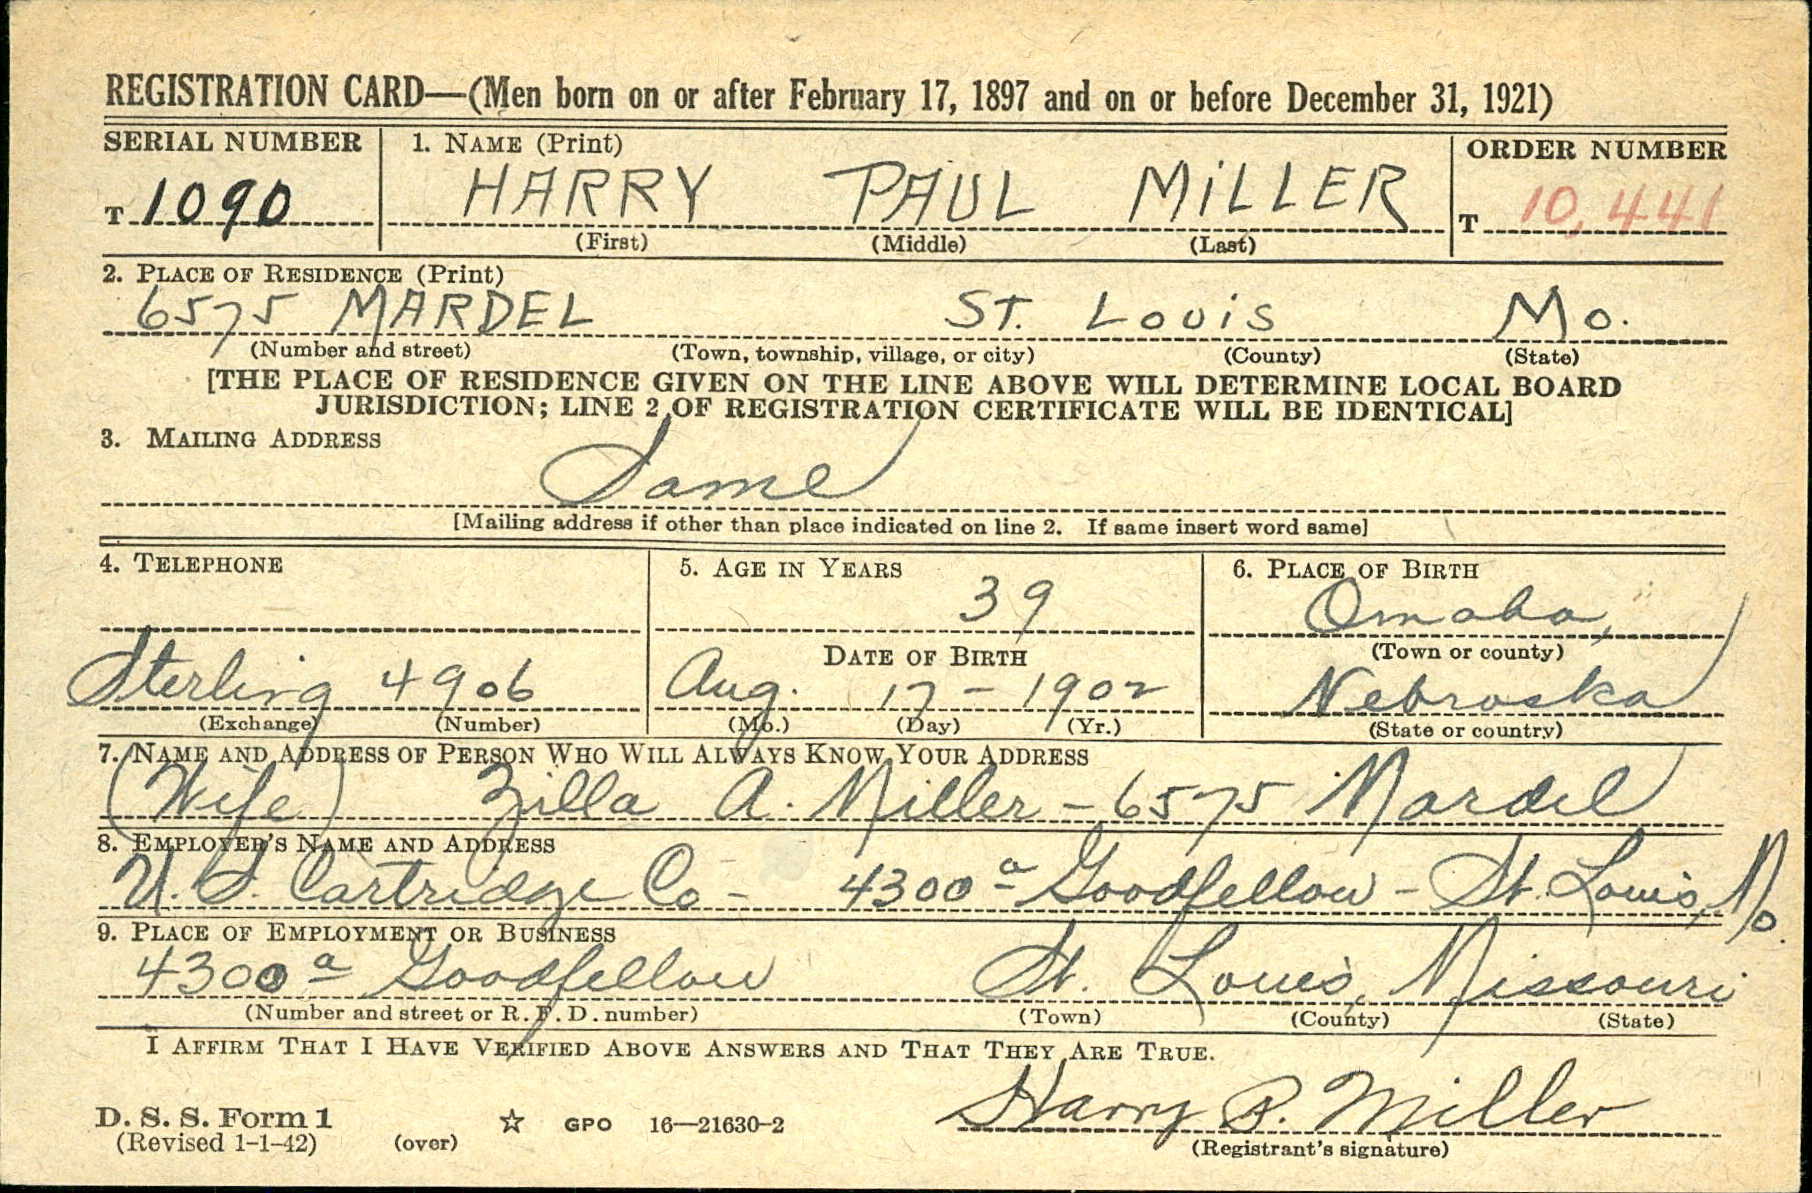 REGISTRATION CARD—(Men born on or after February 17, 1897 and on or before December 31, 1921)
SERIAL NUMBER 1. NAME (Print) ORDER NUMBER
T 1090 HARRY PAUL MiLLER T 10,441
(First) (Middle) (Last)
2. PLACE OF RESIDENCE (Print)
6575 MARDEL ST. LOUiS MO.
(Number and street) (Town, township, village, or city) (County) (State)
[THE PLACE OF RESIDENCE GIVEN ON THE LINE ABOVE WILL DETERMINE LOCAL BOARD
JURISDICTION; LINE 2 OF REGISTRATION CERTIFICATE WILL BE IDENTICAL]
3. MAILING ADDRESS
Same
[Mailing address if other than place indicated on line 2. If same insert word same]
4. TELEPHONE 5. AGE IN YEARS 6. PLACE OF BIRTH
39 Omaha,
DATE OF BIRTH (Town or county)
Sterling 4906 Aug. 17-1902 Nebraska
(Exchange) (Number) (Mo.) (Day) (Yr.) (State or country)
7. NAME AND ADDRESS OF PERSON WHO WILL ALWAYS KNOW YOUR ADDRESS
(Wife) Zilla A. Miller - 6575 Mardel
8. EMPLOYER'S NAME AND ADDRESS
U.S. Cartridge Co - 4300a Goodfellow - St. Louis, Mo.
9. PLACE OF EMPLOYMENT OR BUSINESS
4300a Goodfellow St. Louis, Missouri
(Number and street or R. F. D. number) (Town) (County) (State)
I AFFIRM THAT I HAVE VERIFIED ABOVE ANSWERS AND THAT THEY ARE TRUE.
Harry P. Miller
D. S. S. Form 1 ☆ GPO 16—21630-2
(Revised 1-1-42) (over) (Registrant's signature)